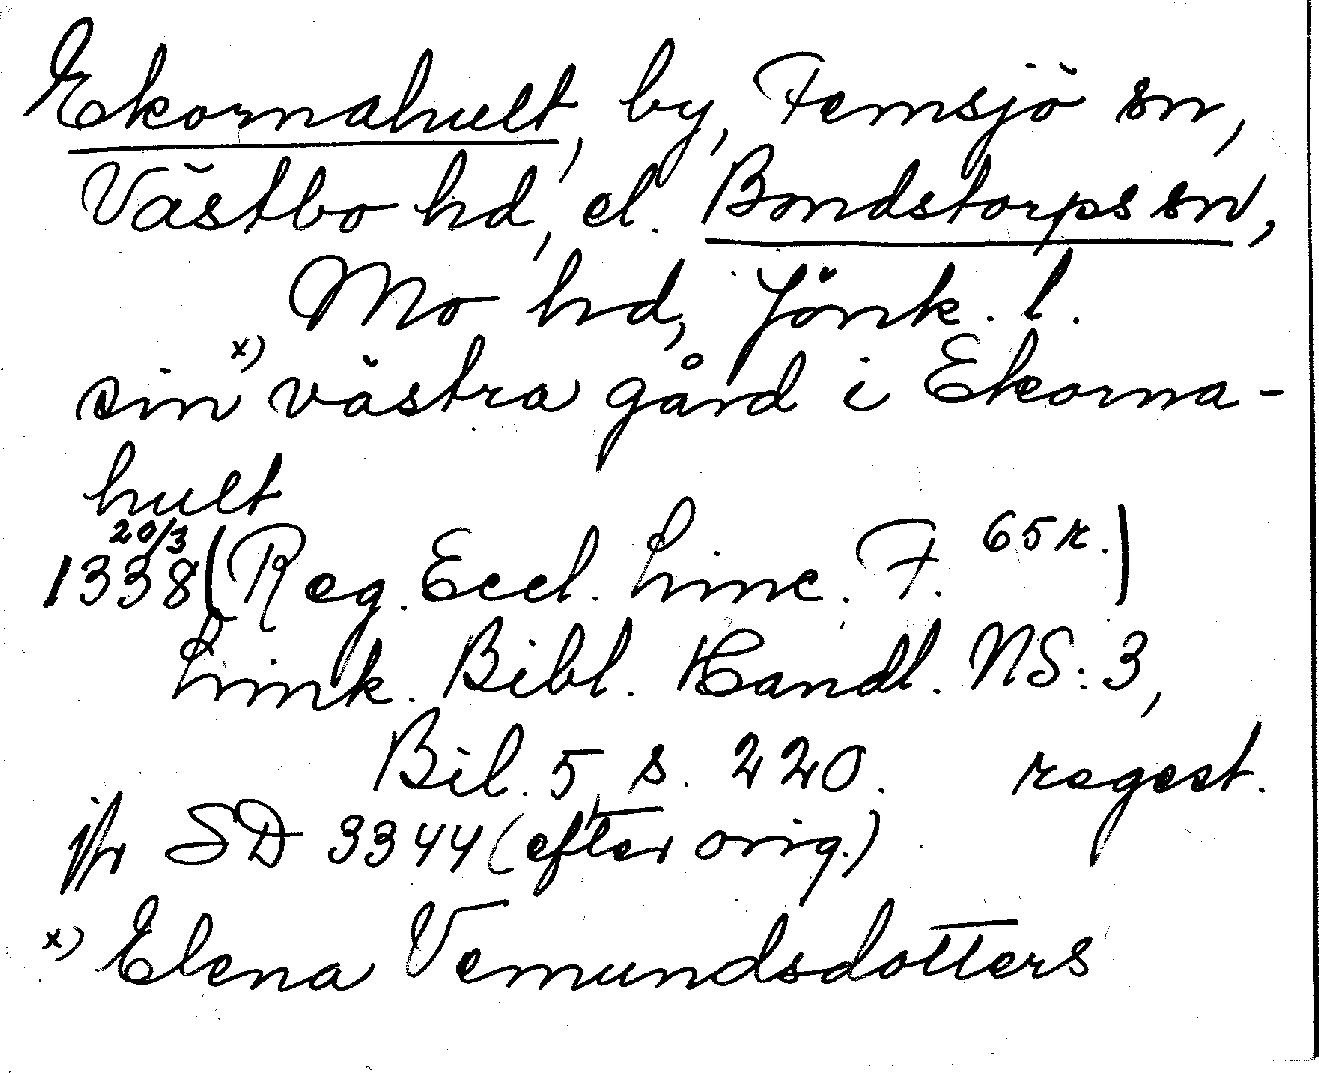 Ekornahult, by, Femsjö sn,
Västbo hd, el. Bondstorps sn,
Mo hd, Jönk. l.
sin x) västra gård i Ekorna-
hult
20/3
1338 (Reg. Eccl. Linc. F. 65 r.)
Link. Bibl. Handl. NS: 3,
Bil. 5 s. 220. regest.
jfr SD 3344 (efter orig.)
x) Elena Vemundsdotters